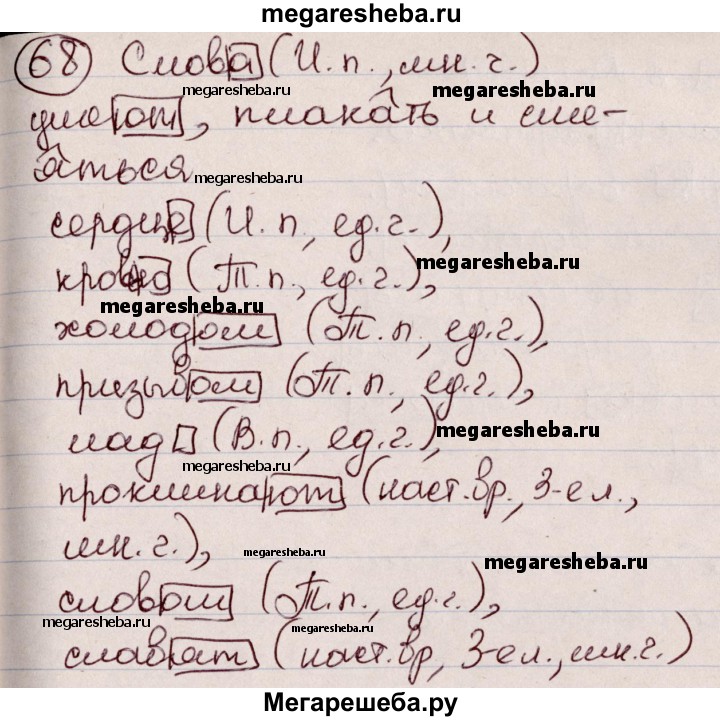 megaresheba.ru
68 Слова (И.п., мн.ч.)
megaresheba.ru megaresheba.ru
умеют, плакать и сме-
яться
megaresheba.ru
сердце (И.п., ед.ч.),
кровью (Т.п., ед.ч.),
megaresheba.ru
megaresheba.ru
холодом (Т.п., ед.ч.),
призывом (Т.п., ед.ч.),
лад (В.п., ед.ч.),
megaresheba.ru
megaresheba.ru
проклинают (наст.вр., 3-е л.,
мн.ч.),
megaresheba.ru
megaresheba.ru
словом (Т.п., ед.ч.),
megaresheba.ru
megaresheba.ru
славят (наст.вр, 3-е л., мн.ч.)
Мегарешеба.ру